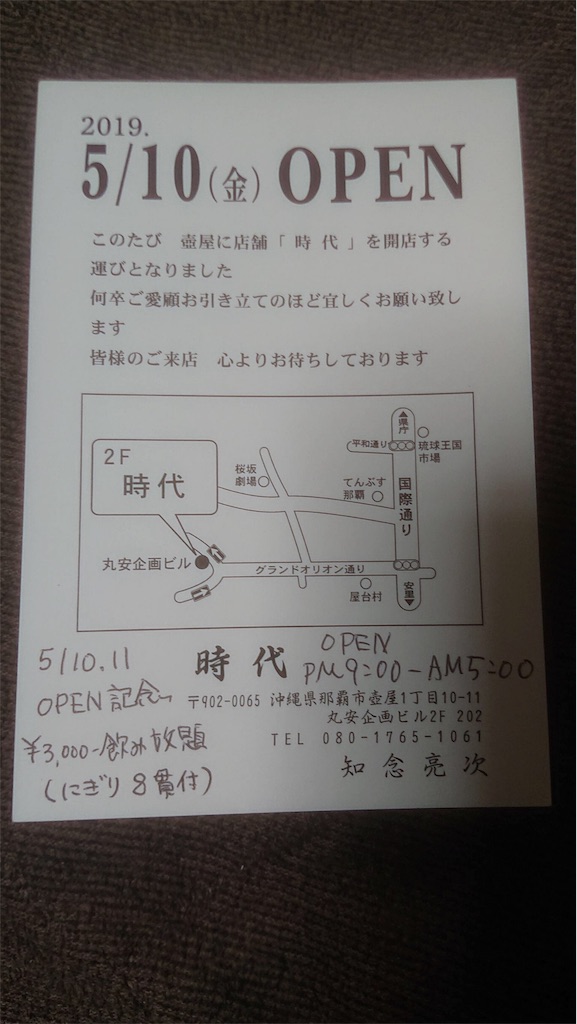 2019.
5/10(金) OPEN
このたび 壺屋に店舗「 時 代 」を開店する
運びとなりました
何卒ご愛顧お引き立てのほど宜しくお願い致し
ます
皆様のご来店 心よりお待ちしております
▲県庁
平和通り
琉球王国
市場
2F
時代
桜坂
劇場
てんぶす
那覇
国際通り
丸安企画ビル
グランドオリオン通り
屋台村
安里▼
5/10.11
OPEN記念
¥3,000-飲み放題
(にぎり8貫付)
時 代
OPEN
PM9:00-AM5:00
〒902-0065 沖縄県那覇市壺屋1丁目10-11
丸安企画ビル2F 202
TEL 080-1765-1061
知 念 亮 次